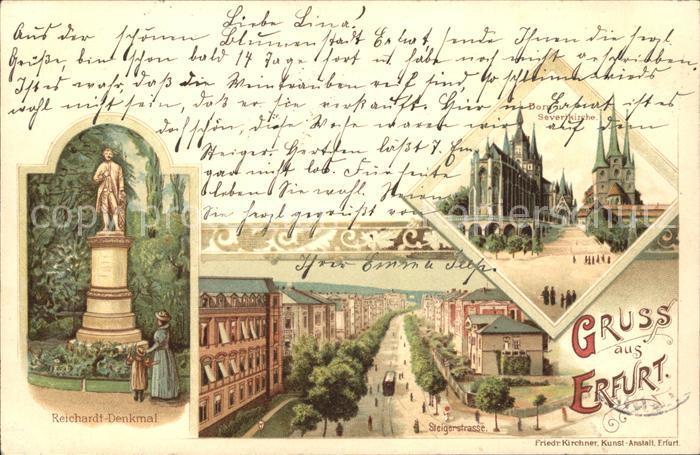 Liebe Lina!
Aus der schönen Blumenstadt Erfurt sende Ihnen die herzl.
Grüße, bin schon bald 14 Tage fort u. habe noch nicht geschrieben.
Ist es wahr, daß die Weintrauben reif sind, so schlimm wirds
wohl nicht sein, daß er sie verkauft. Hier in Erfurt ist es
doch schön, diese Woche waren wir auf dem
Steiger. Gretchen läßt
gar nicht los. Für heute
leben Sie wohl.
Sie herzl. gegrüßt von
Ihrer Emma
Dom
Severikirche.
Reichardt-Denkmal
Steigerstrasse.
GRUSS
aus
ERFURT.
Friedr. Kirchner, Kunst-Anstalt, Erfurt.